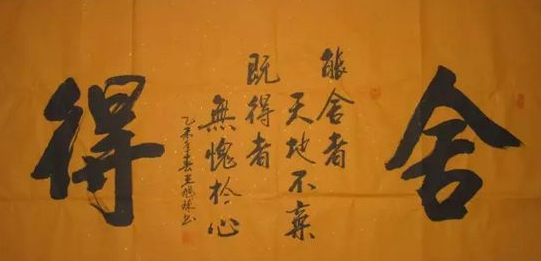 舍
能舍者
天地不棄
既得者
無愧於心
乙未年春王旭林書
得